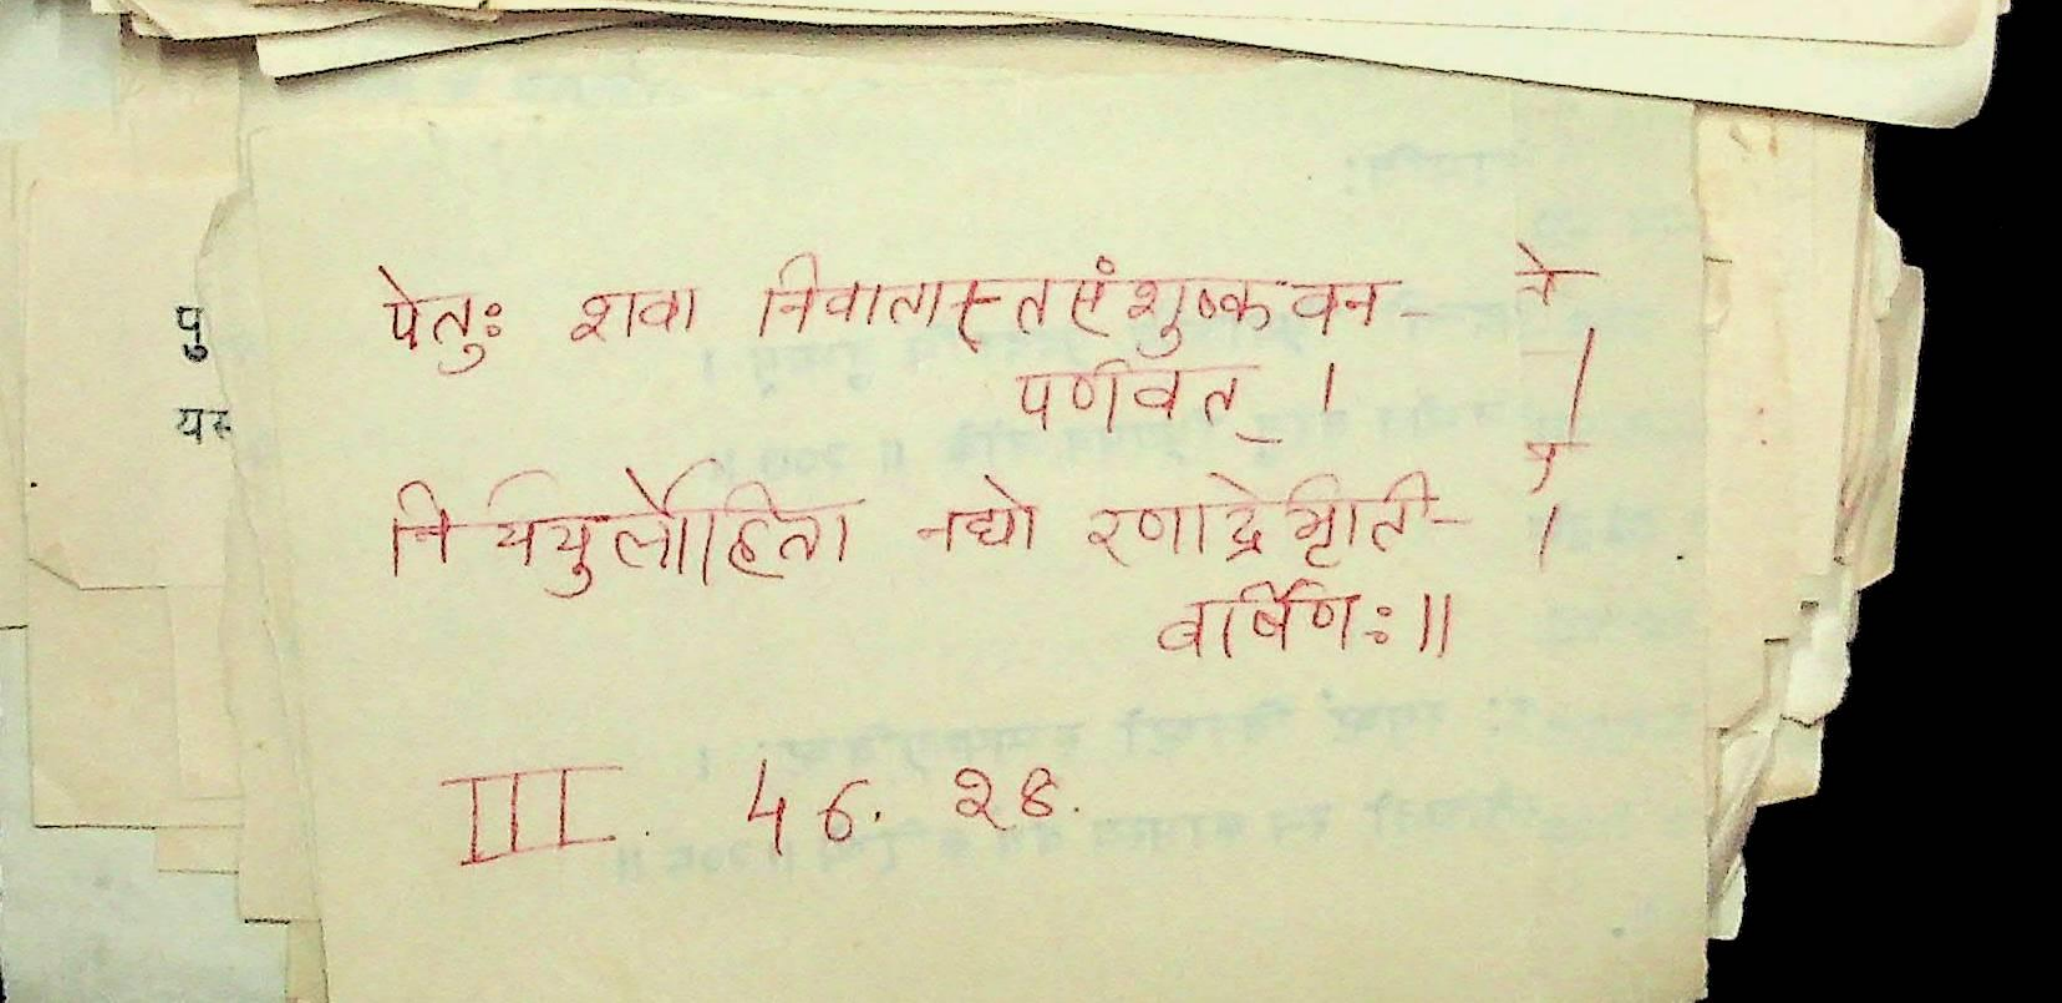 पेतुः शवा निवातास्तसंशुष्कवन-
पर्णवत् ।
निर्ययुर्लोहिता नद्यो रणाद्रेर्मृति-
वर्षिणः॥
III. 46. २8.
पु
यस्